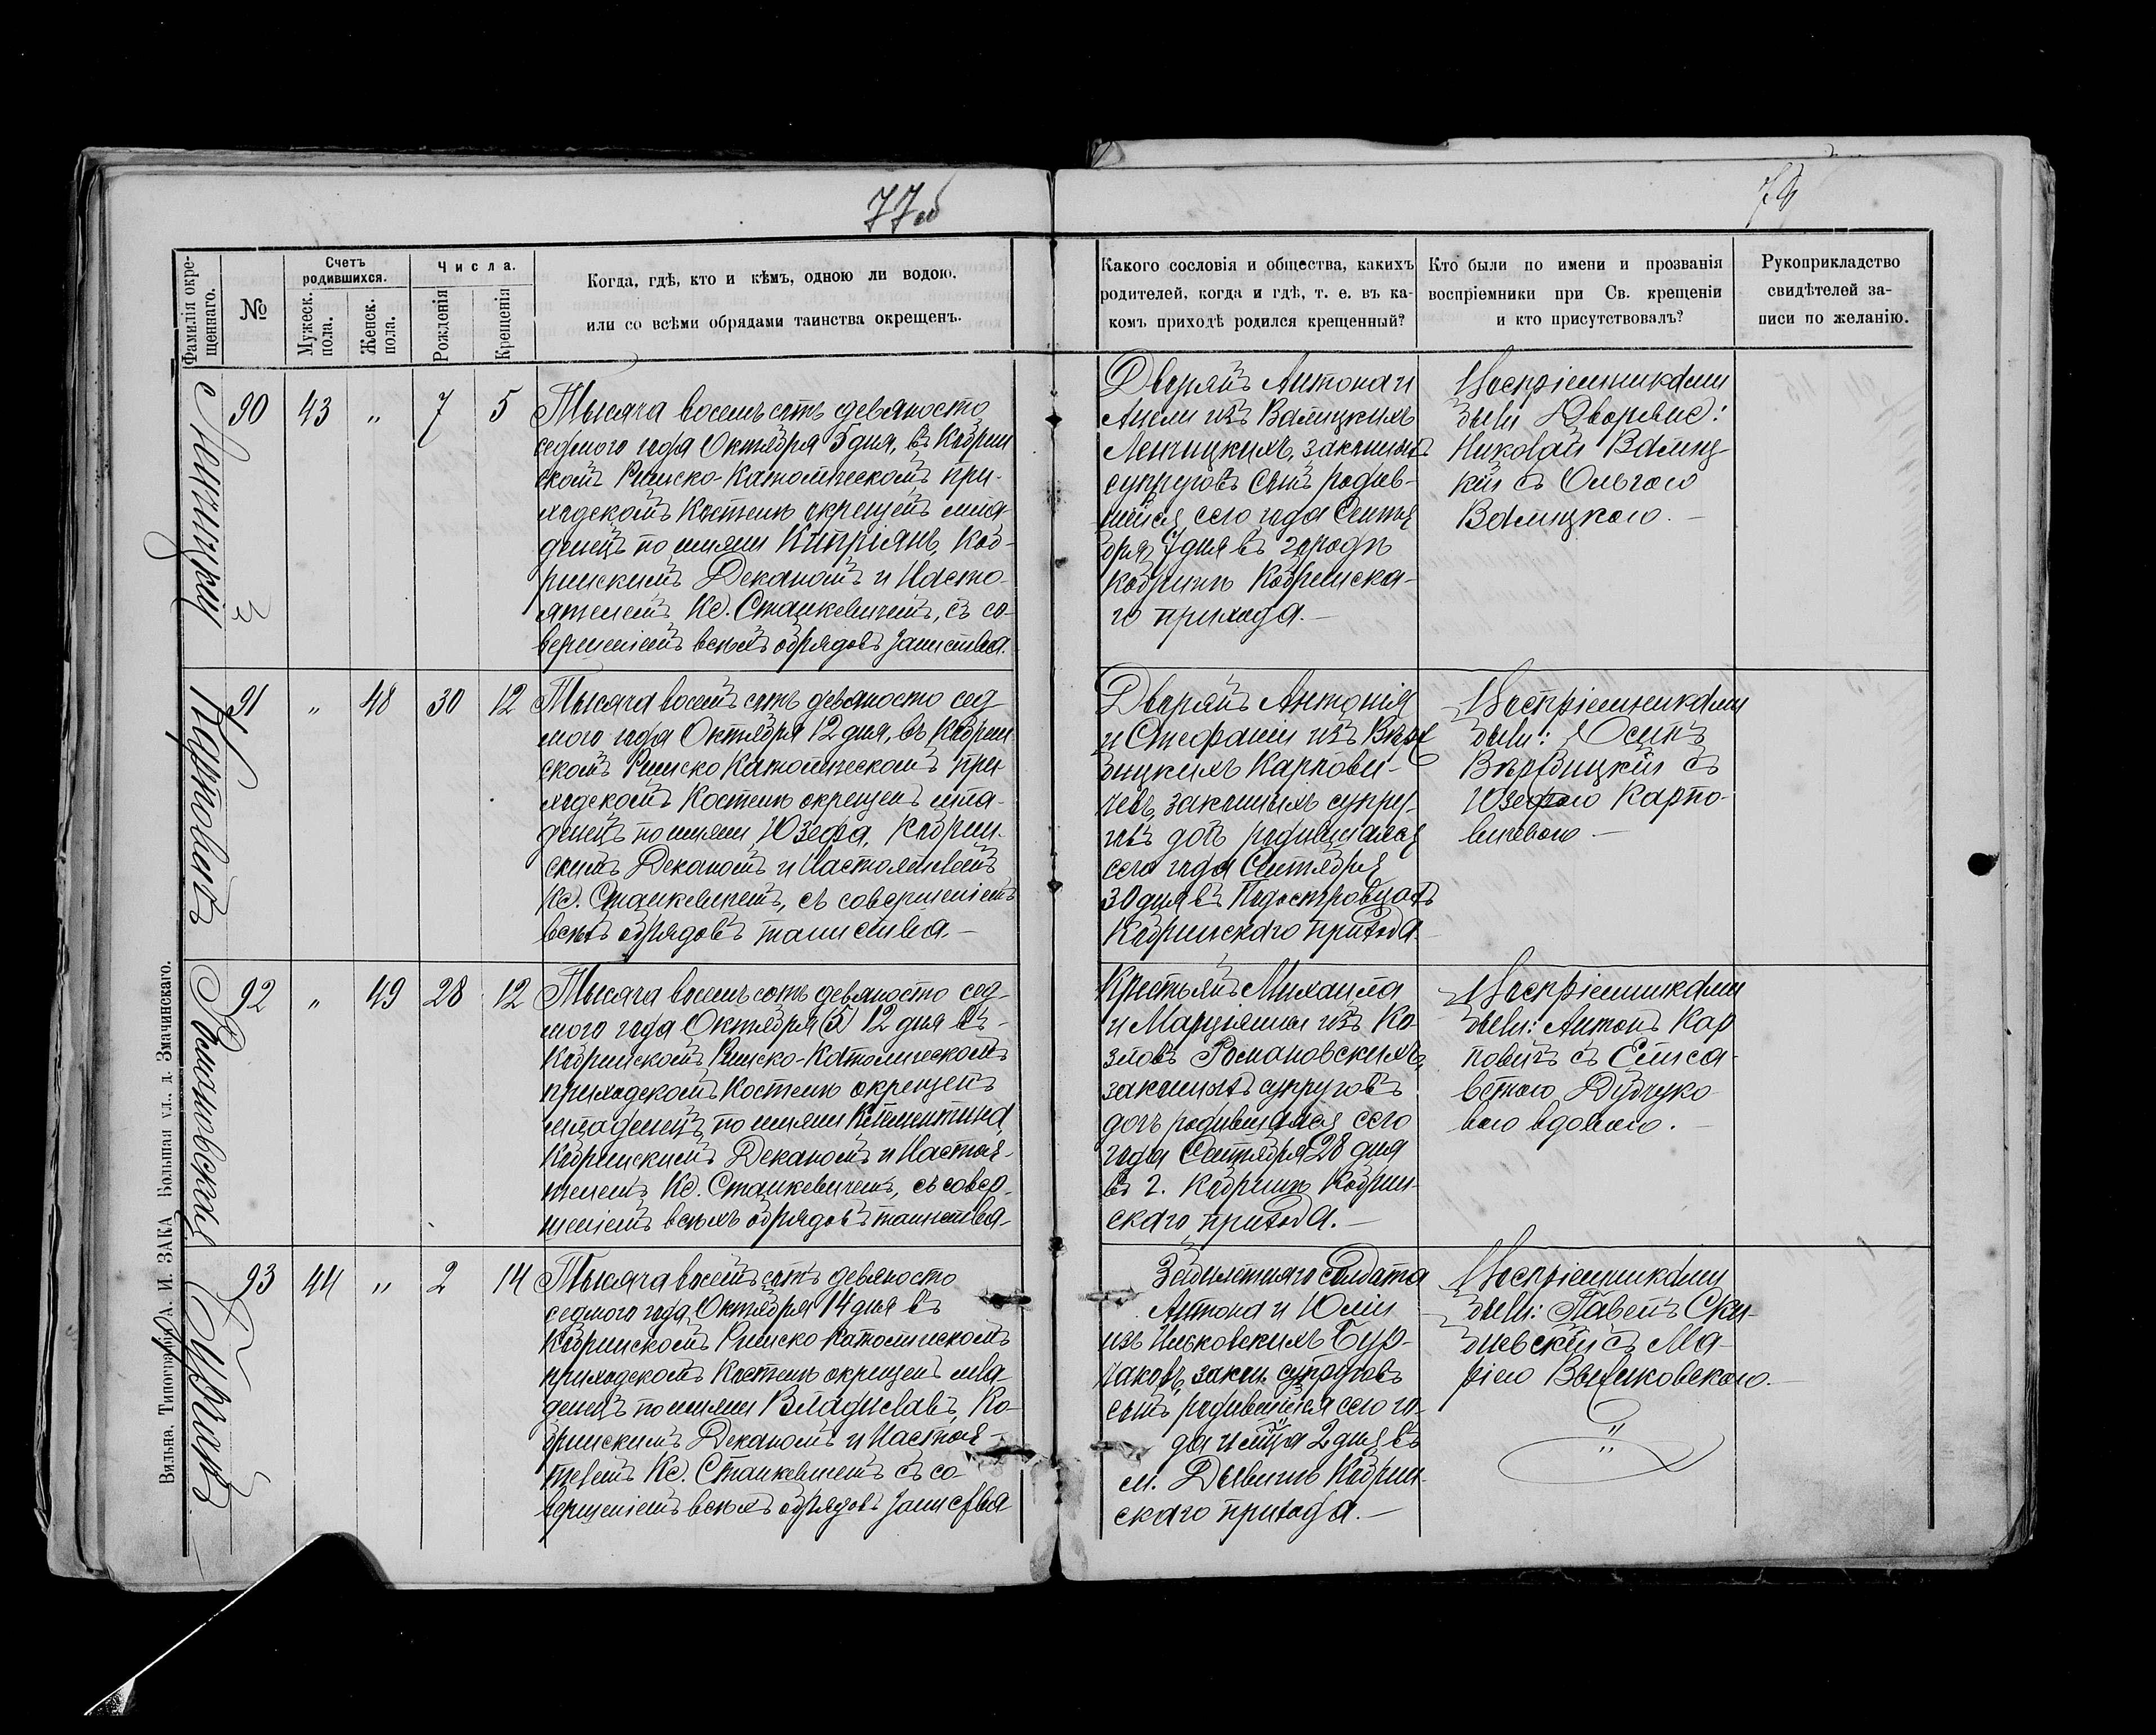 77об
79
Фамилія окре-
щеннаго.
№
Счетъ
родившихся.
Мужеск.
пола.
Женск.
пола.
Числа.
Рожденія
Крещенія
Когда, гдѣ, кто и кѣмъ, одною ли водою.
или со всѣми обрядами таинства окрещенъ.
Какого сословія и общества, какихъ
родителей, когда и гдѣ, т. е. въ ка-
комъ приходѣ родился крещенный?
Кто были по имени и прозванія
воспріемники при Св. крещеніи
и кто присутствовалъ?
Рукоприкладство
свидѣтелей за-
писи по желанію.
90 43 „ 7 5
Тысяча восемъ сотъ девяносто
седмого года Октября 5 дня, въ Кобрин
скомъ Римско-Католическомъ при-
ходскомъ Костелѣ окрещенъ мла-
денецъ по имени Кипріянъ, Коб-
ринскимъ Деканомъ и Насто-
ятелемъ Кс. Станкевичемъ, съ со-
вершеніемъ всѣхъ обрядовъ таинства.
Дворянъ Антона и
изъ Валицкихъ
законныхъ
супруговъ сынъ родив-
шійся сего года Сентя
бря 7 дня въ городѣ
Кобринѣ Кобринска-
го прихода.—
Воспріемниками
были Дворяне:
Николай Валиц-
кій съ Ольгою
Валицкою.—
Карповичъ
91 „ 48 30 12
Тысяча восемъ сотъ девяносто сед
мого года Октября 12 дня, въ Кобрин
скомъ Римско Католическомъ при
ходскомъ Костелѣ окрещенъ мла-
денецъ по имени Юзефа, Кобрин-
скимъ Деканомъ и Настоятелемъ
Кс. Станкевичемъ, съ совершеніемъ
всѣхъ обрядовъ таинства.—
Дворянъ Антонія
и Стефаніи изъ Верх
бицкихъ Карпови-
чевъ, законныхъ супру-
говъ дочь родившаяся
сего года Сентября
30 дня въ
Кобринскаго прихода.
Воспріемниками
были: Осипъ
съ
Юзефою Карпо-
вичевою.—
Романовская
92 „ 49 28 12
Тысяча восемъ сотъ девяносто сед-
мого года Октября (5) 12 дня въ
Кобринскомъ Римско-Католическомъ
приходскомъ Костелѣ окрещенъ
младенецъ по имени Клементина,
Кобринскимъ Деканомъ и Настоя-
телемъ Кс. Станкевичемъ, съ совер-
шеніемъ всѣхъ обрядовъ таинства.
Крестьянъ Михаила
и Марціянны изъ Ко-
зловъ Романовскихъ,
законныхъ супруговъ
дочь родившаяся сего
года Сентября 28 дня
въ г. Кобринѣ Кобрин-
скаго прихода.—
Воспріемниками
были: Антонъ Кар
повичъ съ Елиса-
ветою Дубчуко-
вою вдовою.—
Бурчакъ
93 44 „ 2 14
Тысяча восемъ сотъ девяносто
седмого года Октября 14 дня въ
Кобринскомъ Римско Католическомъ
приходскомъ Костелѣ окрещенъ мла
денецъ по имени Владиславъ, Ко-
бринскимъ Деканомъ и Настоя-
телемъ Кс. Станкевичемъ съ со-
вершеніемъ всѣхъ обрядовъ таинства
солдата
Антона и Юліи
изъ Бур-
чаковъ, закон. супруговъ
сынъ родившійся сего го-
да и м-ца 2 дня въ
м. Дывинѣ Кобрин-
скаго прихода.—
Воспріемниками
были: Павелъ Ски-
бневскій съ Ма-
ріею
Вильна, Типографія А. И. ЗАКА Большая ул., д. Змачинскаго.